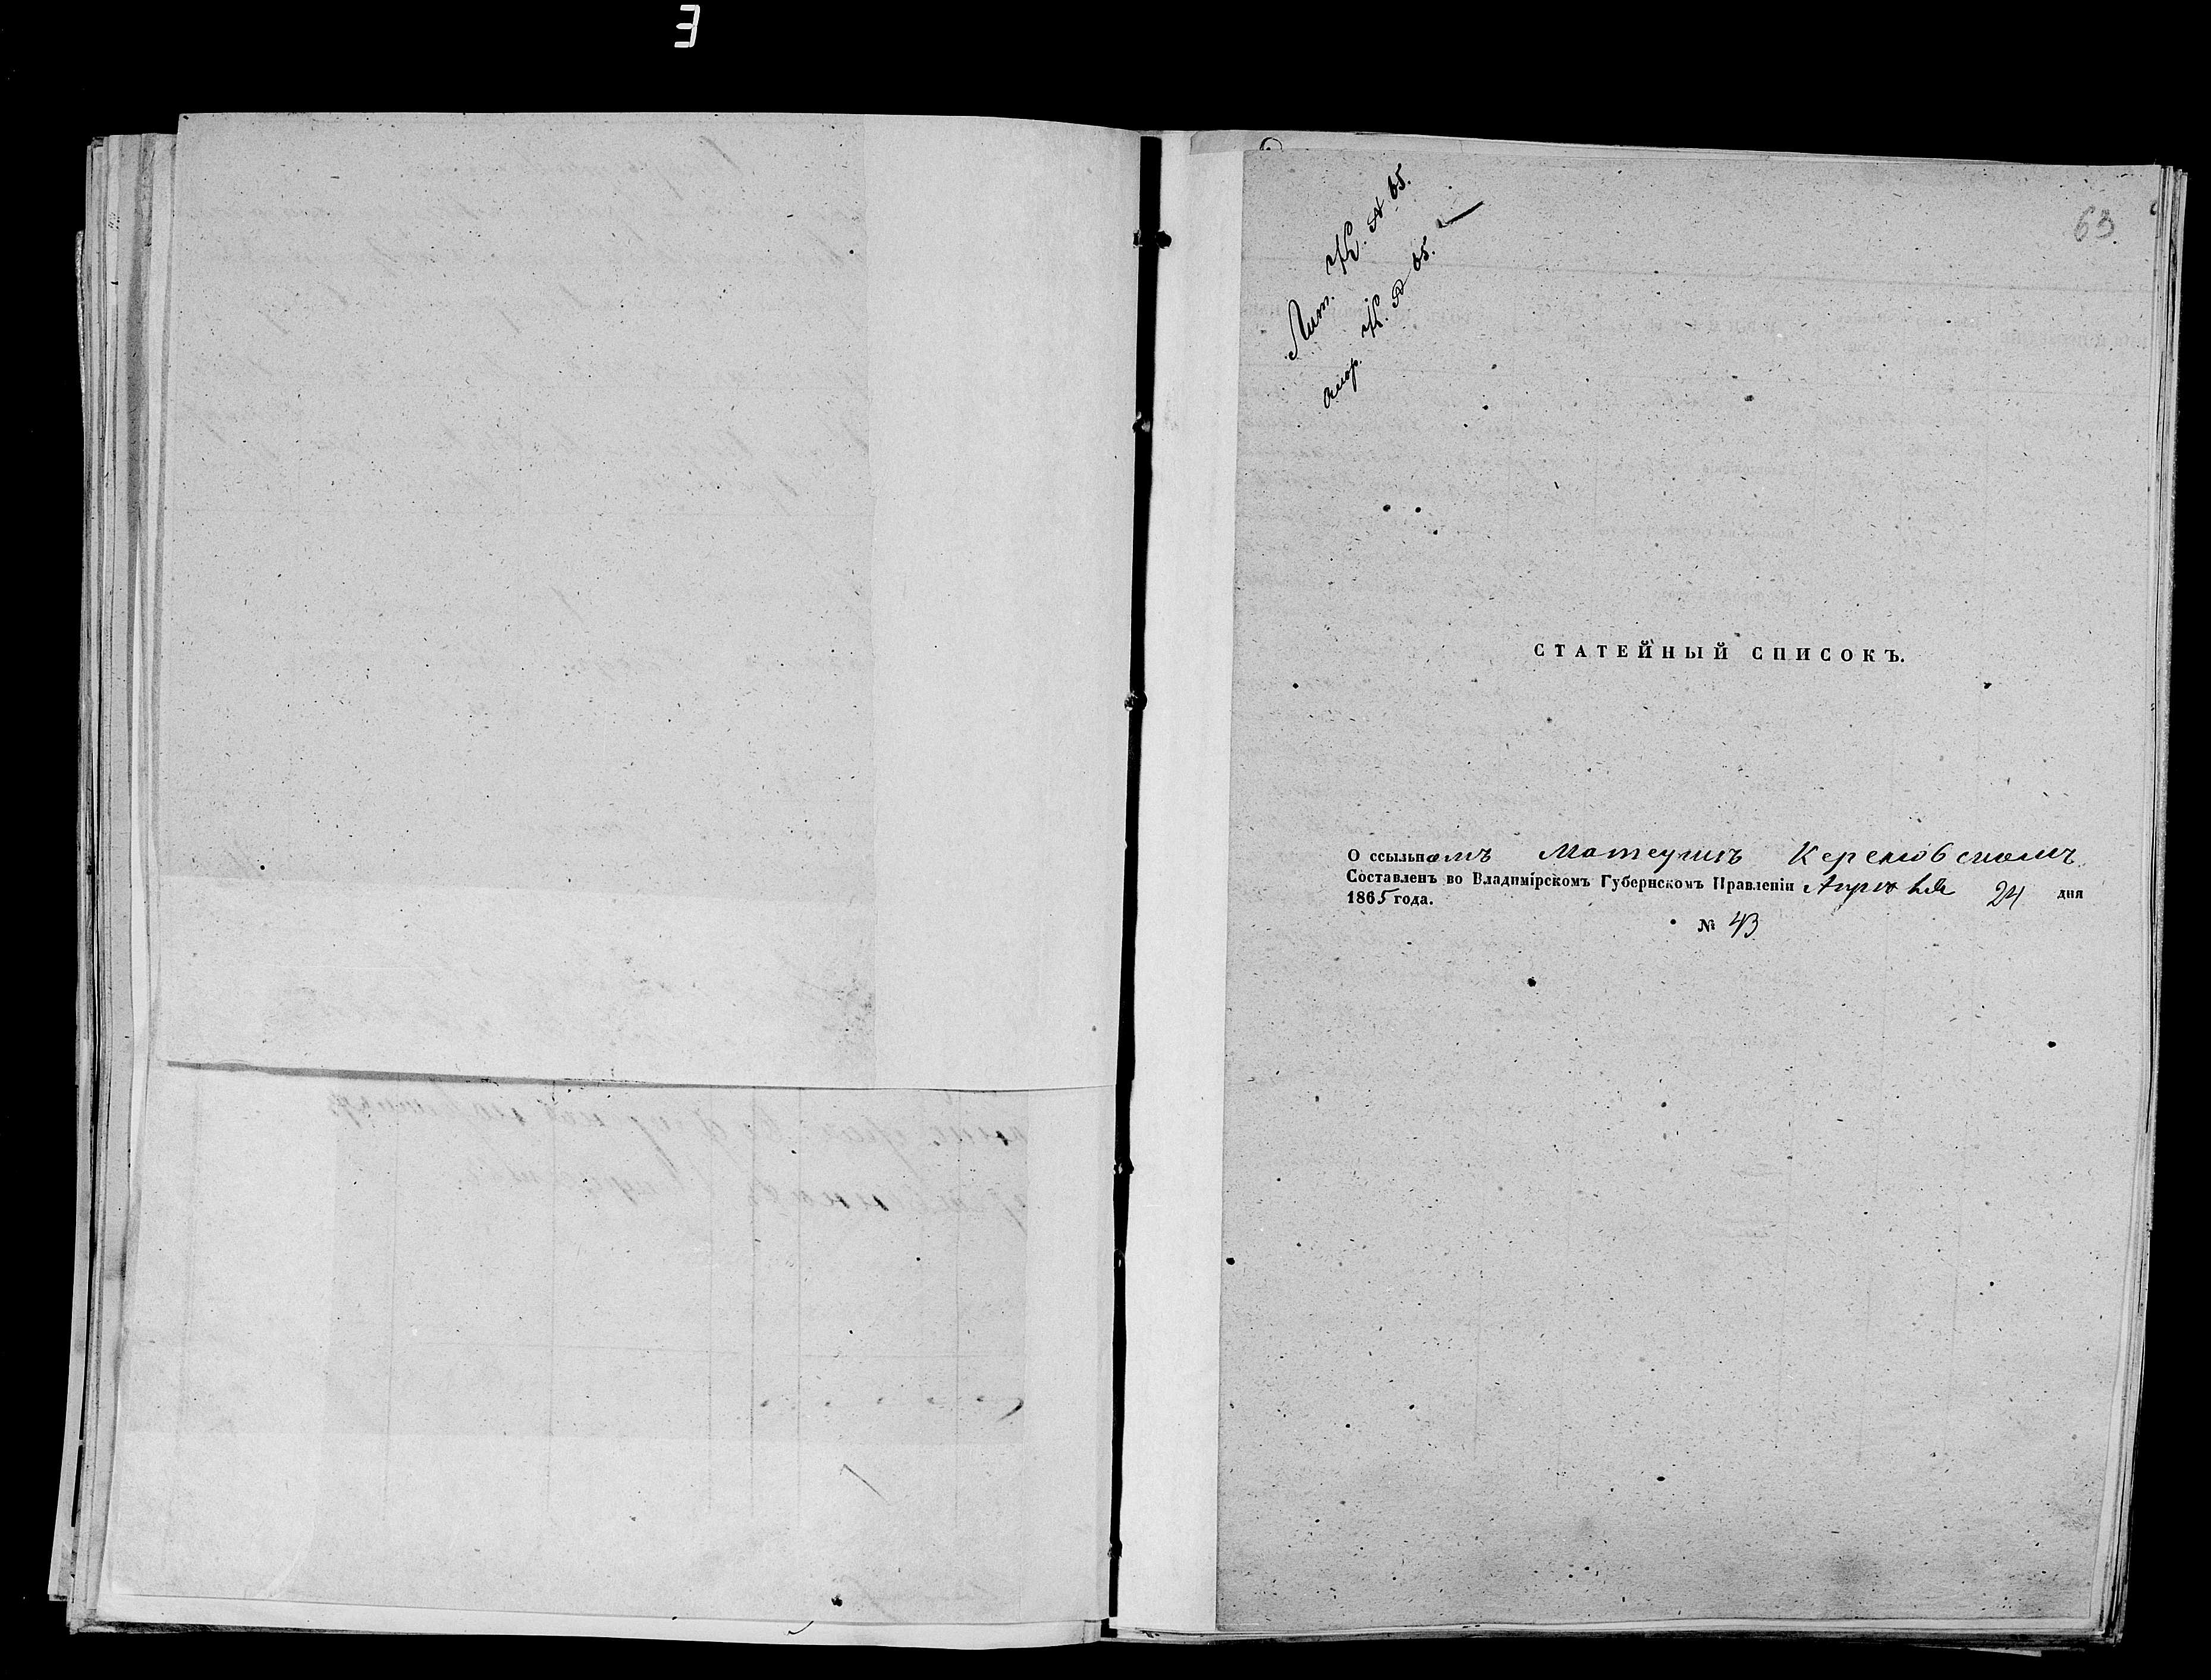 63
Лит. К. № 65.
К. № 65.
СТАТЕЙНЫЙ СПИСОКЪ.
О ссыльномъ Матеушъ Керемовскомъ
Составленъ во Владимірскомъ Губернскомъ Правленіи Апрѣля 24 дня
1865 года.
№ 43